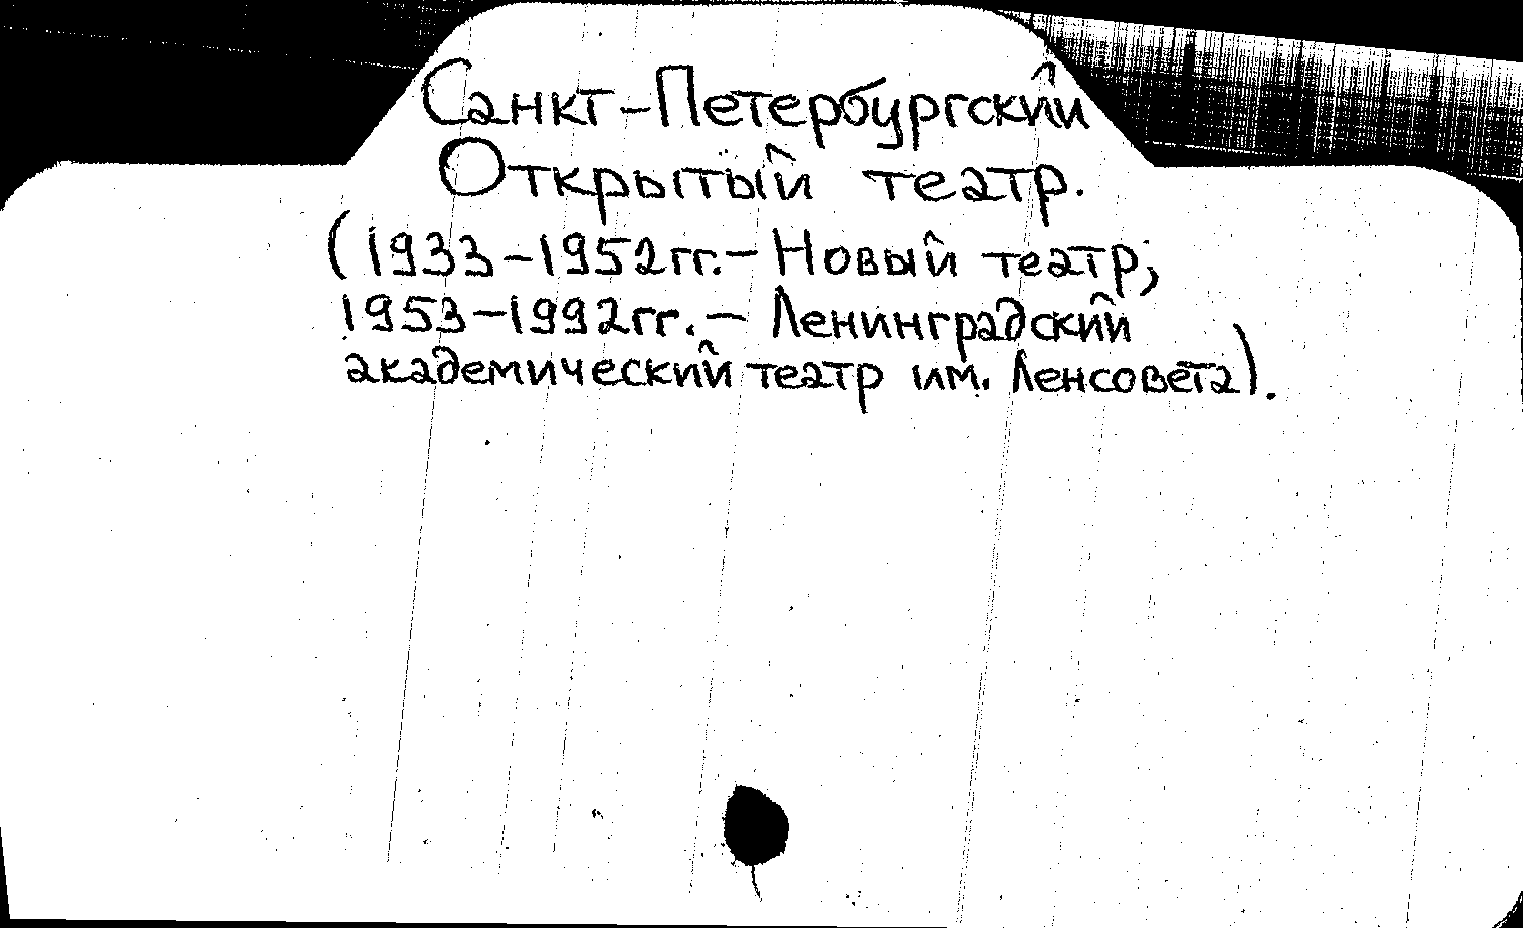 Санкт-Петербургский
Открытый театр.
(1933-1952гг.- Новый театр;
1953-1992гг.- Ленинградский
академический театр им. Ленсовета).